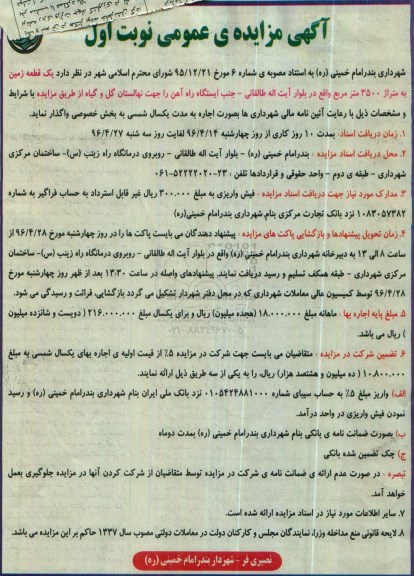 آگهی مزایده ی عمومی نوبت اول
شهرداری بندرامام خمینی (ره) به استناد مصوبه ی شماره ۶ مورخ ۹۵/۱۲/۲۱ شورای محترم اسلامی شهر در نظر دارد یک قطعه زمین
به متراژ ۳۵۰۰ متر مربع واقع در بلوار آیت اله طالقانی - جنب ایستگاه راه آهن را جهت نهالستان گل و گیاه از طریق مزایده با شرایط و
و مشخصات ذیل با رعایت آئین نامه مالی شهرداری ها بصورت اجاره به مدت یکسال شمسی به بخش خصوصی واگذار نماید.
۱. زمان دریافت اسناد: بمدت ۱۰ روز کاری از روز چهارشنبه ۹۶/۴/۱۴ لغایت روز سه شنبه ۹۶/۴/۲۷
۲. محل دریافت اسناد مزایده : بندرامام خمینی (ره) - بلوار آیت اله طالقانی - روبروی درمانگاه راه زینب (س)- ساختمان مرکزی
شهرداری - طبقه ی دوم - واحد حقوقی و قراردادها تلفن : ۲۳-۵۲۲۲۲۰۲۰-۰۶۱
۳. مدارک مورد نیاز جهت دریافت اسناد مزایده : فیش واریزی به مبلغ ۳۰۰.۰۰۰ ریال غیر قابل استرداد به حساب فراگیر به شماره
۱۰۸۳۰۵۷۳۸۲ نزد بانک تجارت مرکزی بنام شهرداری بندرامام خمینی(ره)
۴. زمان تحویل پیشنهادها و بازگشایی پاکت های مزایده : پیشنهاد دهندگان می بایست پاکت ها را در روز چهارشنبه مورخ ۹۶/۴/۲۸ از
ساعت ۸ الی ۱۳ به دبیرخانه شهرداری بندرامام خمینی (ره) واقع در بلوار آیت اله طالقانی - روبروی درمانگاه راه زینب (س)- ساختمان
مرکزی شهرداری - طبقه همکف تسلیم و رسید دریافت نمایند. پیشنهادهای واصله در ساعت ۱۳:۳۰ بعد از ظهر روز چهارشنبه مورخ
۹۶/۴/۲۸ توسط کمیسیون عالی معاملات شهرداری که در محل دفتر شهردار تشکیل می گردد بازگشایی، قرائت و رسیدگی می شود.
۵. مبلغ پایه اجاره بها : ماهانه مبلغ ۱۸.۰۰۰.۰۰۰ (هجده میلیون) ریال و برای یکسال مبلغ ۲۱۶.۰۰۰.۰۰۰ ( دویست و شانزده میلیون
) ریال می باشد.
۶. تضمین شرکت در مزایده : متقاضیان می بایست جهت شرکت در مزایده ۵٪ از قیمت اولیه ی اجاره بهای یکسال شمسی به مبلغ
۱۰.۸۰۰.۰۰۰ ( ده میلیون و هشتصد هزار) ریال، را به یکی از سه طریق ذیل ارائه نمایند.
الف) واریز مبلغ ۵٪ به حساب سیبای شماره ۰۱۰۵۴۲۴۸۸۱۰۰۰ نزد بانک ملی ایران بنام شهرداری بندرامام خمینی (ره) و رسید
نمودن فیش واریزی در واحد درآمد.
ب) بصورت ضمانت نامه ی بانکی بنام شهرداری بندرامام خمینی (ره) بمدت دوماه
ج) چک تضمین شده بانکی
تبصره : در صورت عدم ارائه ی ضمانت نامه ی شرکت در مزایده توسط متقاضیان از شرکت کردن آنها در مزایده جلوگیری بعمل
خواهد آمد.
۷. سایر اطلاعات مورد نیاز در اسناد مزایده ارائه شده است.
۸. لایحه قانونی منع مداخله وزرا، نمایندگان مجلس و کارکنان دولت در معاملات دولتی مصوب سال ۱۳۳۷ حاکم بر این مزایده می باشد.
نصیری فر - شهردار بندرامام خمینی (ره)